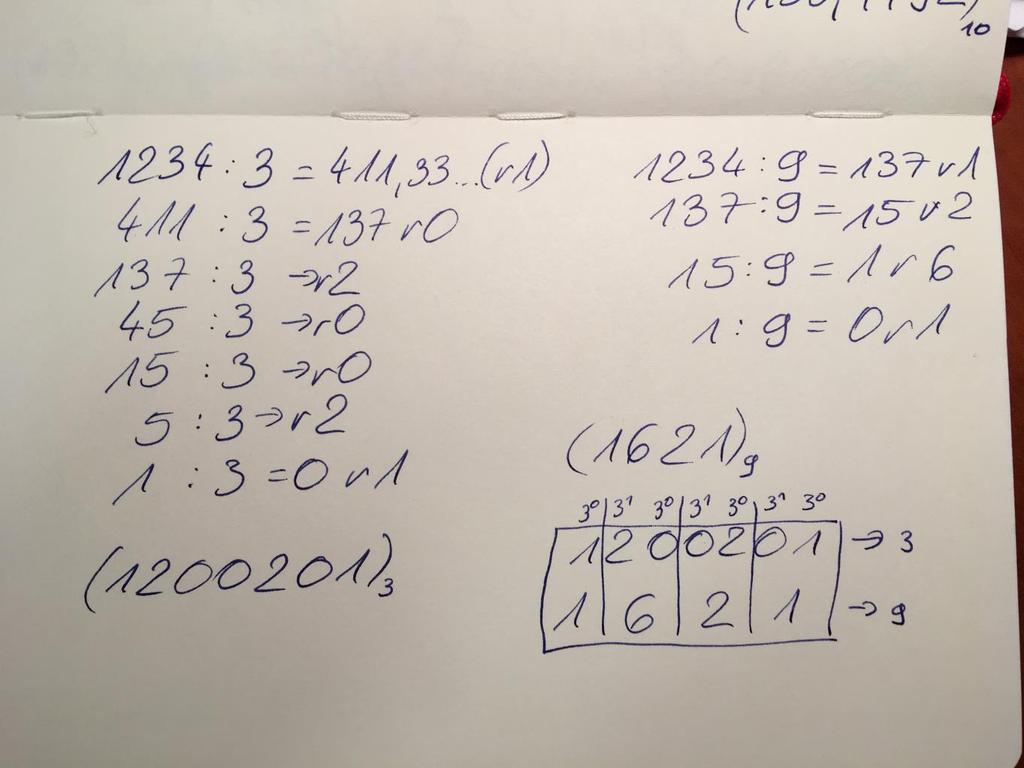 10
1234 : 3 = 411,33...(r1)
411 : 3 = 137 r0
137 : 3 → r2
45 : 3 → r0
15 : 3 → r0
5 : 3 → r2
1 : 3 = 0 r1
(1200201)₃
1234 : 9 = 137 r1
137 : 9 = 15 r2
15 : 9 = 1 r 6
1 : 9 = 0 r1
(1621)₉
3⁰ | 3¹ 3⁰ | 3¹ 3⁰ | 3¹ 3⁰
1 | 2 0 | 0 2 | 0 1 → 3
1 | 6 | 2 | 1 → 9